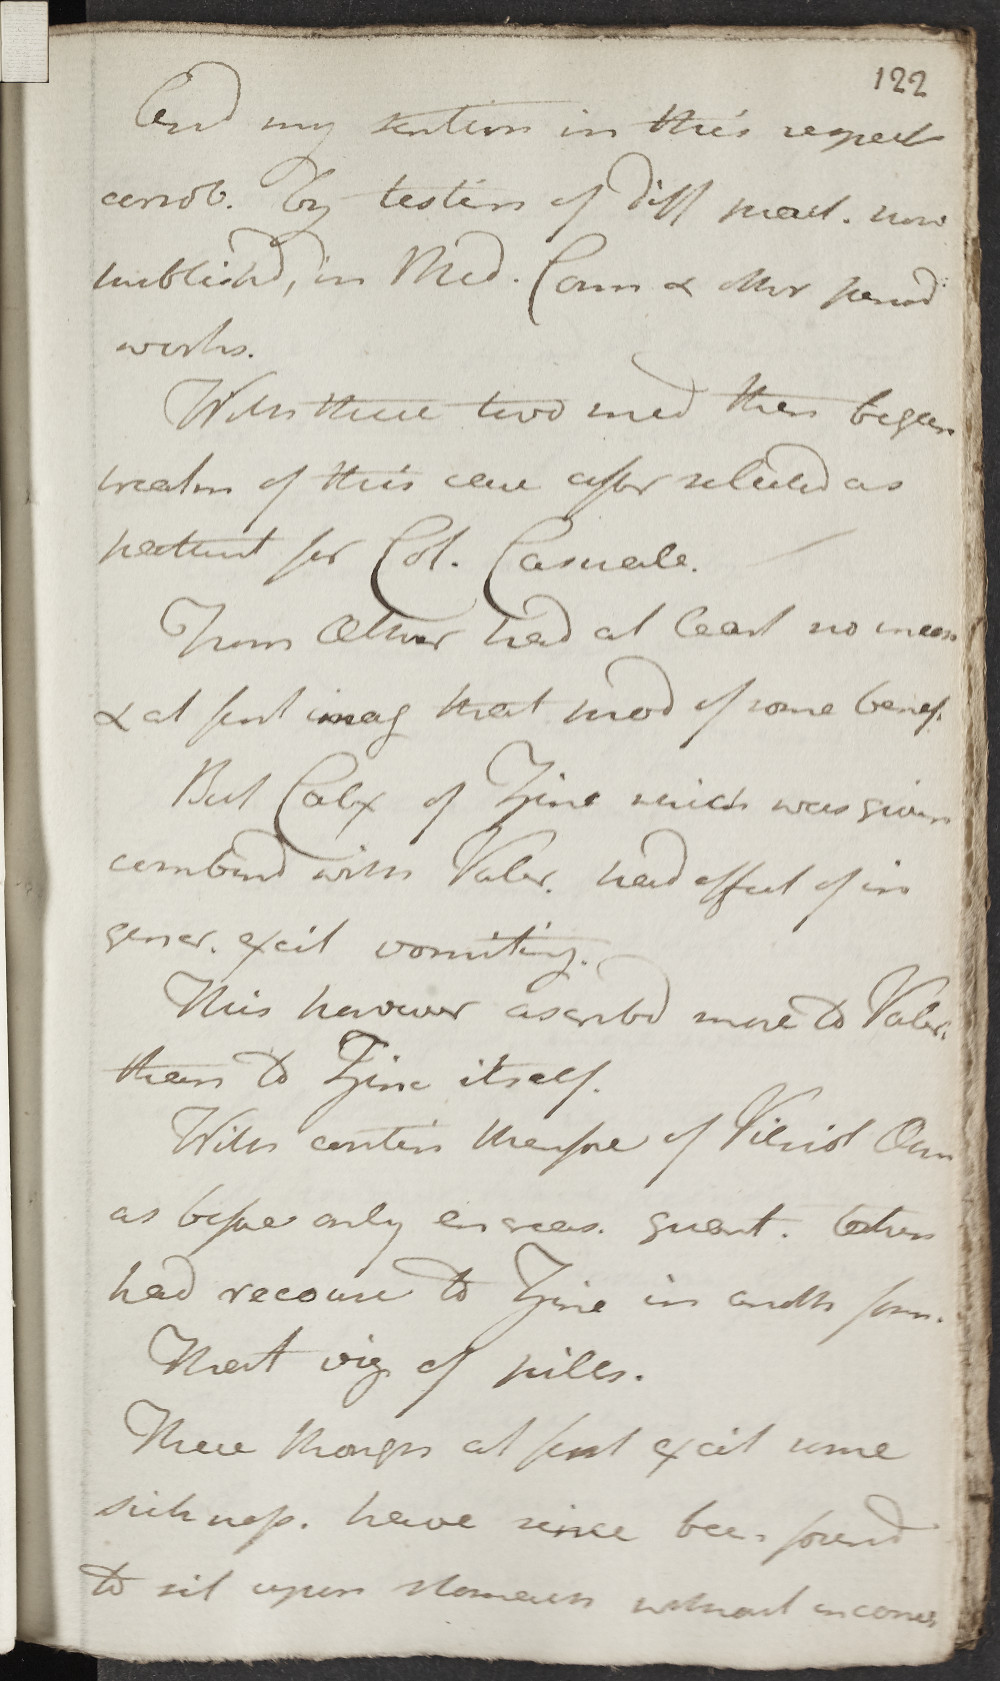 122
And my sentim in this respect
corrob. by testim of diff pract. now
published, in Med. Com & other period
works.
With these two med then began
treatm of this case after selected as
patient for Col. Casuale.
From Æther had at least no incon
& at first imag that prod of some benef.
But Calx of Zinc which was given
combind with Valer. had effect of in
gener. excit vomiting.
This however ascribd more to Valer.
than to Zinc itself.
With contin therefore of Vitriol
as before only encreas. quant.
had recourse to Zinc in anoth form.
That viz of pills.
These though at first excit some
sickness. have since been found
to sit upon stomach without inconv